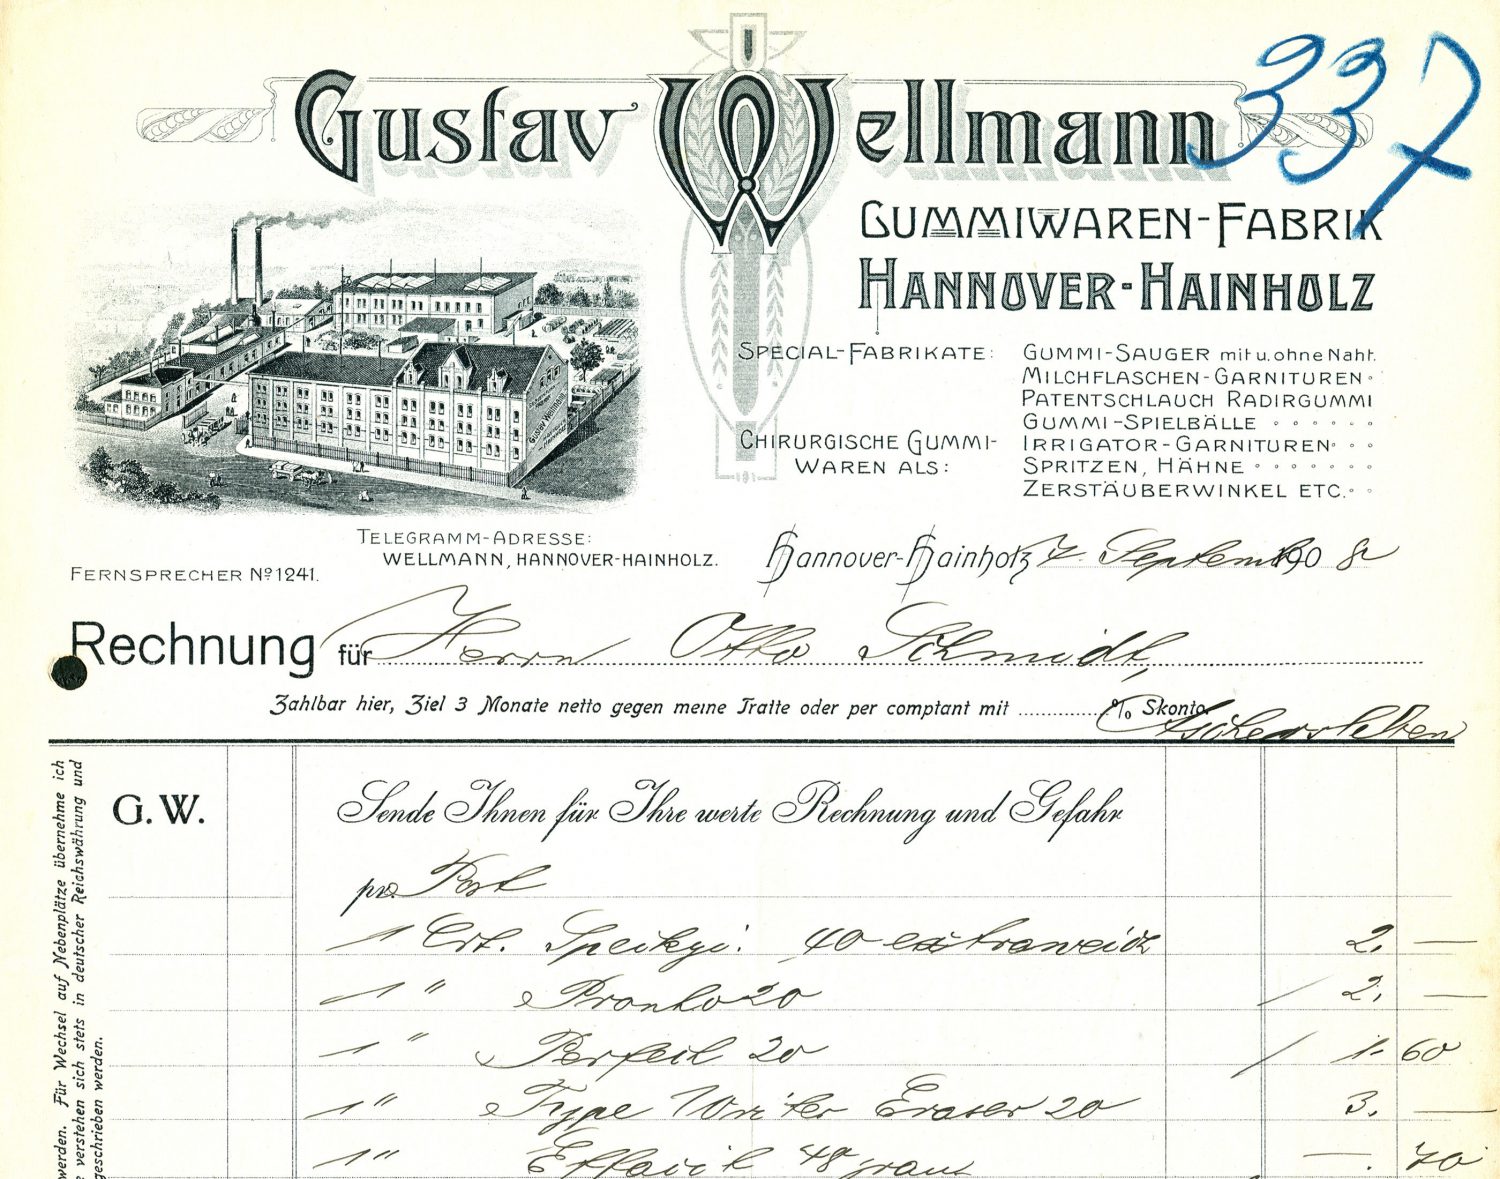 337
Gustav Wellmann
GUMMIWAREN-FABRIK
HANNOVER-HAINHOLZ
SPECIAL-FABRIKATE: GUMMI-SAUGER mit u. ohne Naht.
MILCHFLASCHEN-GARNITUREN
PATENTSCHLAUCH RADIRGUMMI
GUMMI-SPIELBÄLLE
CHIRURGISCHE GUMMI-WAREN ALS: IRRIGATOR-GARNITUREN
SPRITZEN, HÄHNE
ZERSTÄUBERWINKEL ETC.
TELEGRAMM-ADRESSE:
WELLMANN, HANNOVER-HAINHOLZ.
FERNSPRECHER No 1241.
Hannover-Hainholz 4. September 1908
Rechnung für Herrn Otto Schmidt,
Zahlbar hier, Ziel 3 Monate netto gegen meine Tratte oder per comptant mit % Skonto.
Aschersleben
G.W.
Sende Ihnen für Ihre werte Rechnung und Gefahr
pr. Post
1 Crt. 40 extraweich 2. —
1 " Pronto 20 2. —
1 " Perfect 20 1. 60
1 " Type Writer Eraser 20 3. —
1 " 48 —. 70
werden. Für Wechsel auf Nebenplätze übernehme ich
verstehen sich stets in deutscher Reichswährung und
geschrieben werden.